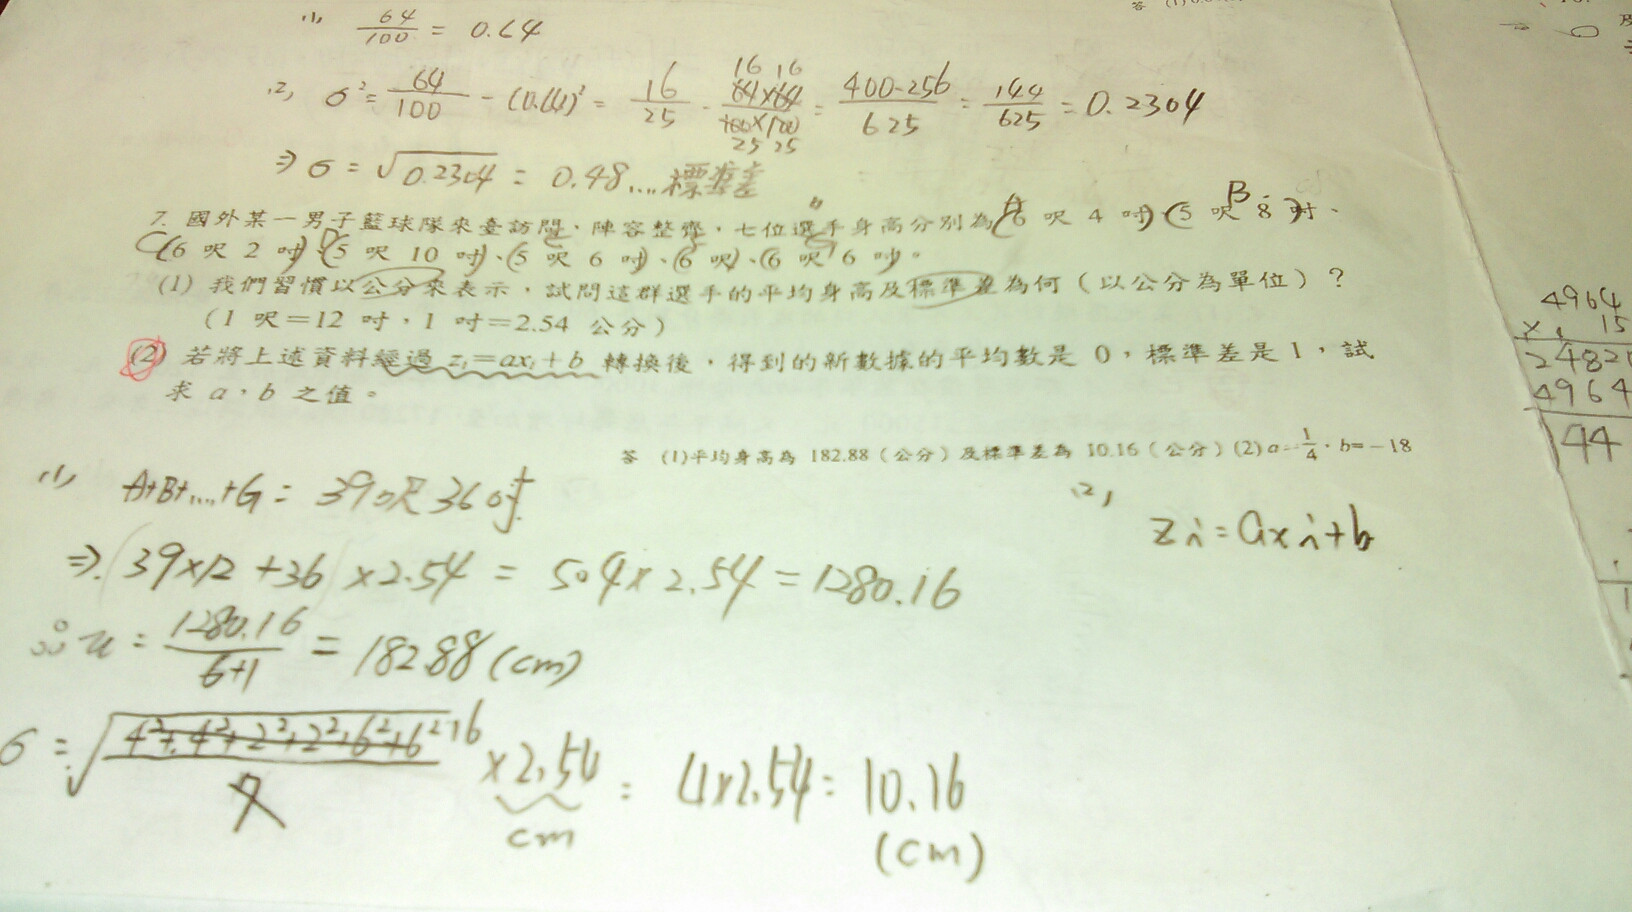 (1) 64/100 = 0.64
(2) σ² = 64/100 - (0.64)² = 16/25 - 64×64/100×100 = 400-256/625 = 144/625 = 0.2304
16 16
25 25
⇒ σ = √0.2304 = 0.48....標準差
7. 國外某一男子籃球隊來臺訪問,陣容整齊,七位選手身高分別為(6 呎 4 吋)、(5 呎 8 吋)、
(6 呎 2 吋)、(5 呎 10 吋)、(5 呎 6 吋)、(6 呎)、(6 呎 6 吋)。
(1) 我們習慣以公分來表示,試問這群選手的平均身高及標準差為何(以公分為單位)?
(1 呎=12 吋,1 吋=2.54 公分)
(2) 若將上述資料經過 zᵢ=axᵢ+b 轉換後,得到的新數據的平均數是 0,標準差是 1,試
求 a,b 之值。
答 (1)平均身高為 182.88(公分)及標準差為 10.16(公分)(2) a=1/4,b=-18
(1) A+B+....+G = 39呎36吋
⇒ (39×12+36)×2.54 = 504×2.54 = 1280.16
∴ u = 1280.16/6+1 = 182.88 (cm)
σ = √4²+4²+2²+2²+6²+6²/7 16 ×2.54 = 4×2.54 = 10.16
cm (cm)
(2)
zi = axi+b
4964
× 15
2482
4964
144